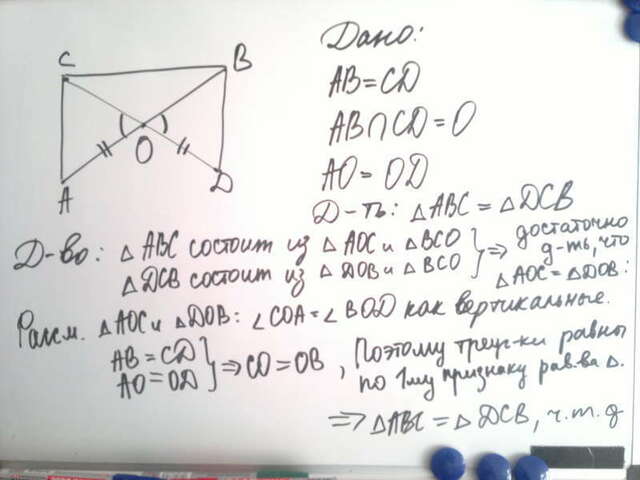 C
B
O
A
D
Дано:
AB=CD
AB∩CD=O
AO=OD
Д-ть: △ABC=△DCB
Д-во: △ABC состоит из △AOC и △BCO
△DCB состоит из △DOB и △BCO
} ⇒ достаточно
д-ть, что
△AOC=△DOB:
Рассм. △AOC и △DOB: ∠COA=∠BOD как вертикальные.
AB=CD
AO=OD
} ⇒ CO=OB, Поэтому треуг-ки равны
по 1му признаку рав-ва △.
⇒ △ABC = △DCB, ч.т.д